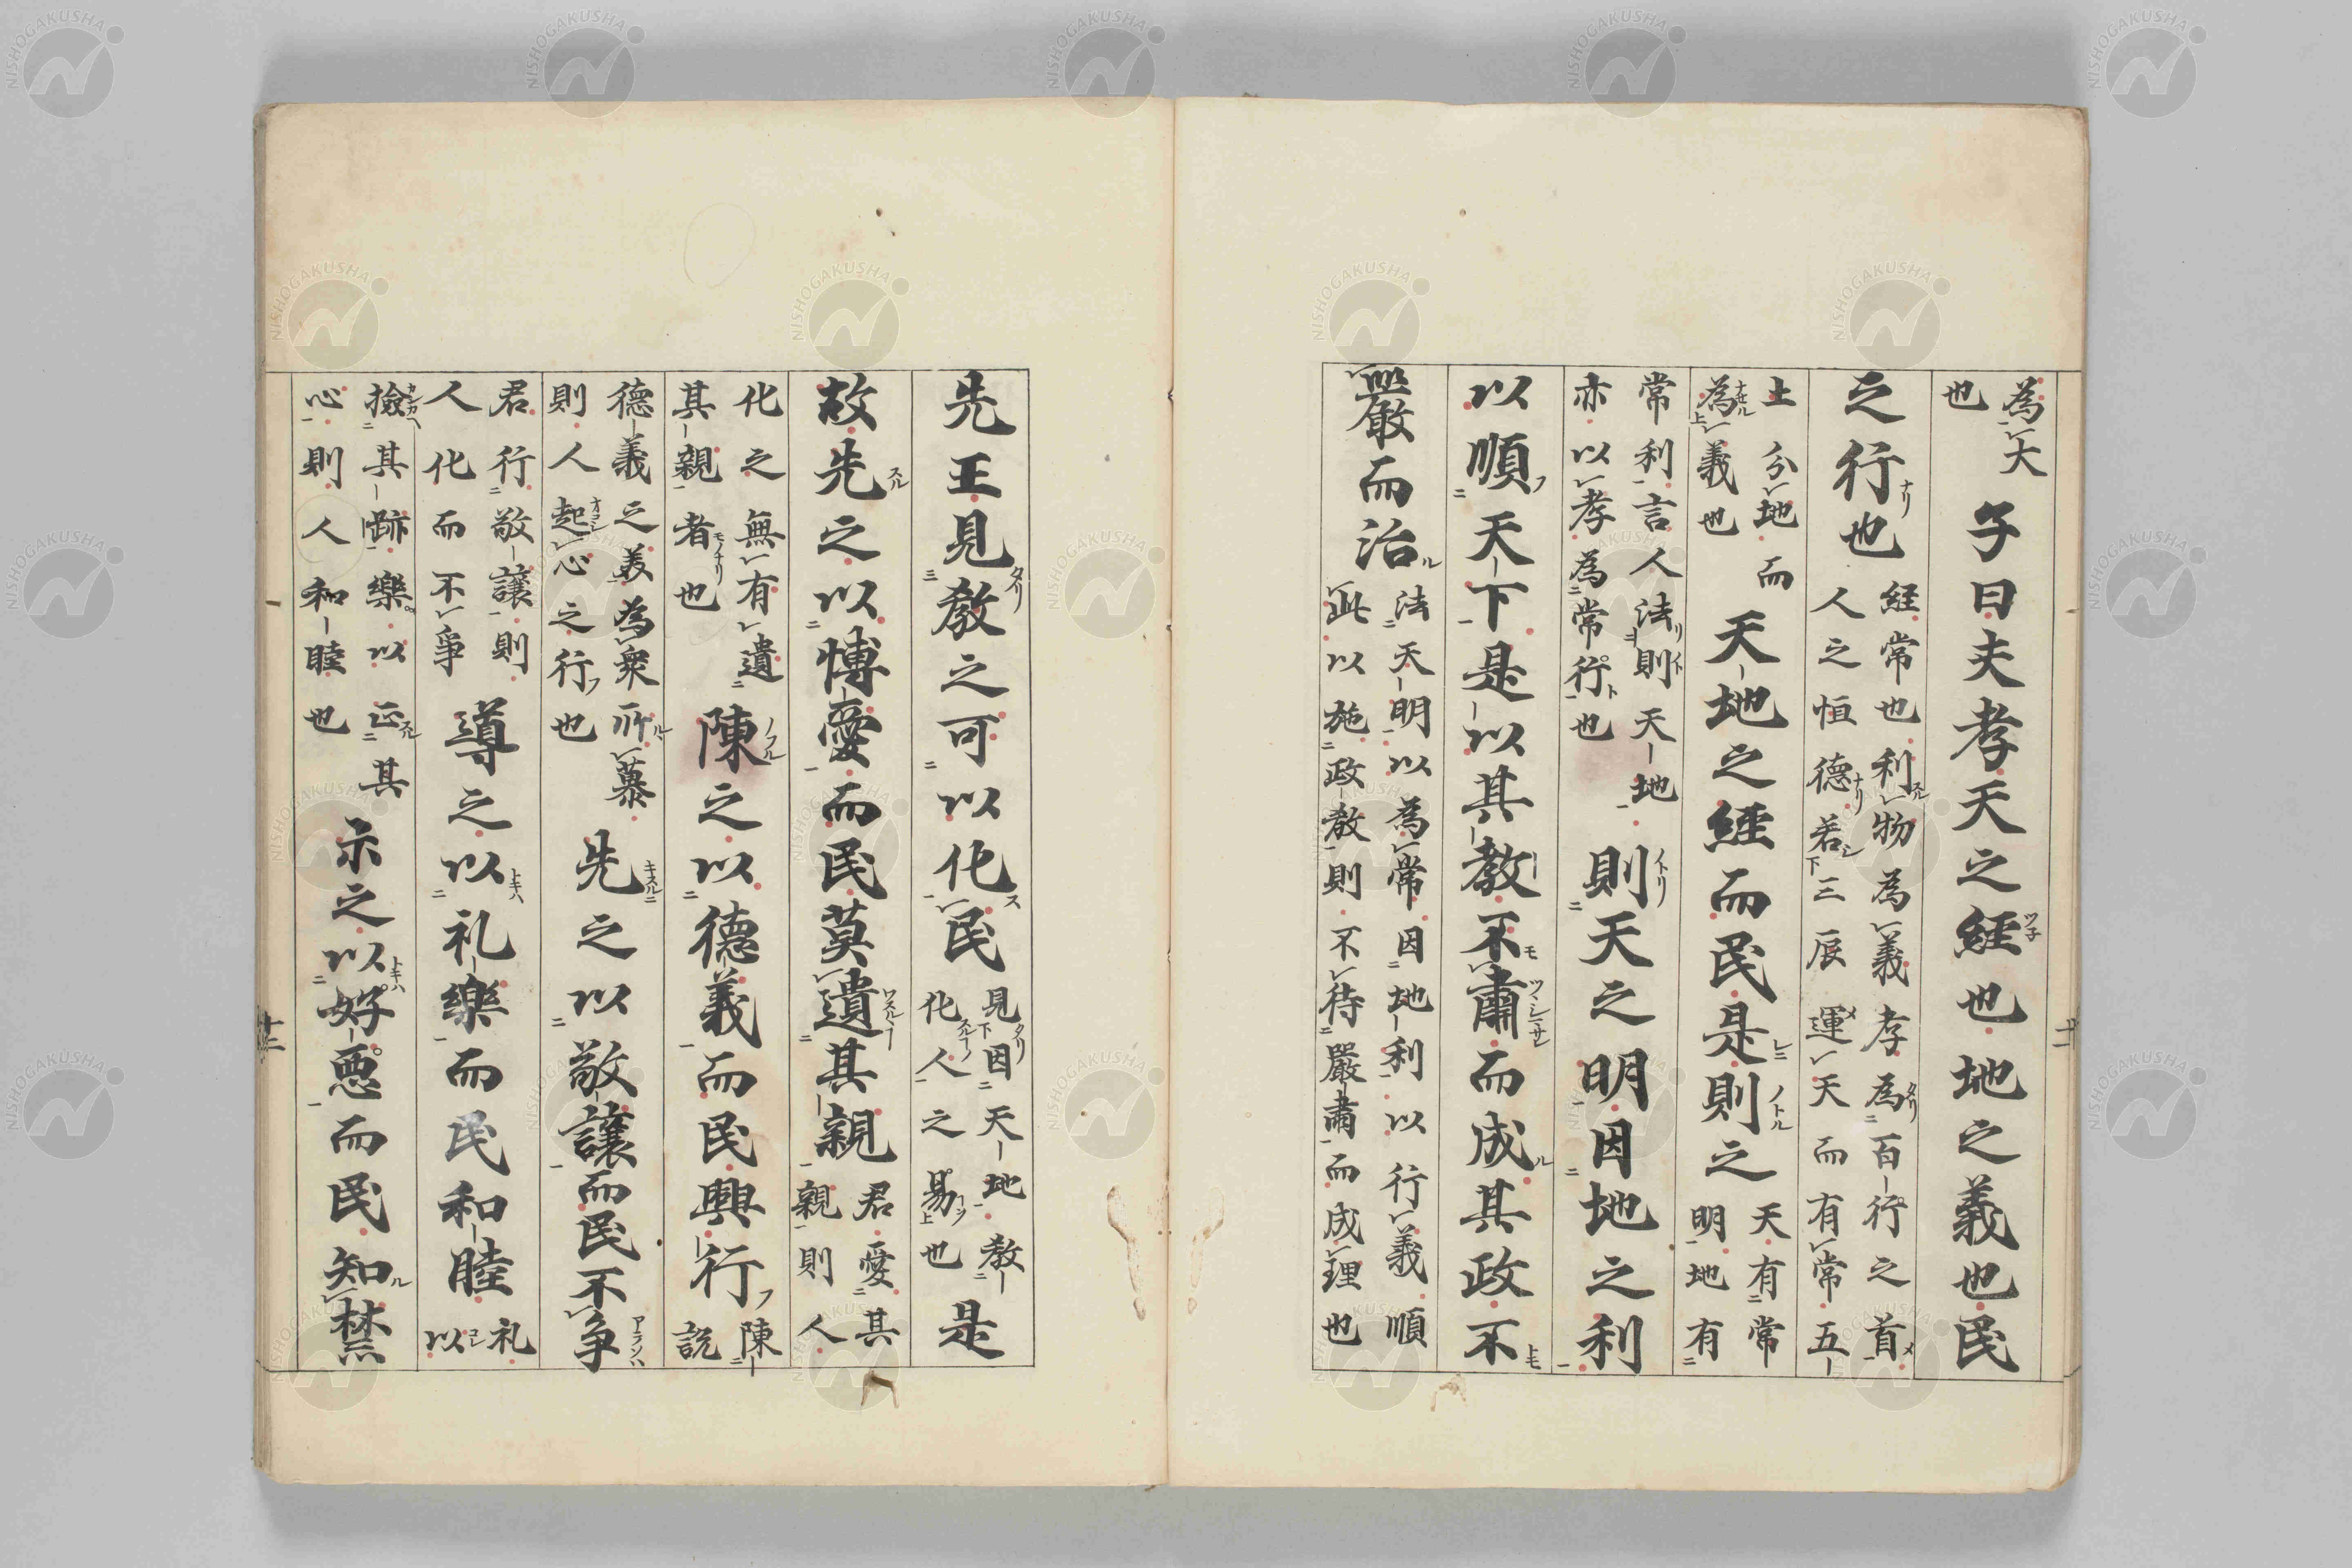 為大
也
子曰夫孝天之經也地之義也民
之行也
經常也利物為義孝為百行之首
人之恒德若三辰運天而有常五
土分地而
為義也
天地之經而民是則之
天有常
明地有
常利言人法則天地
亦以孝為常行也
則天之明因地之利
以順天下是以其教不肅而成其政不
嚴而治
法天明以為常因地利以行義順
此以施政教則不待嚴肅而成理也
先王見教之可以化民
見因天地教
化人之易也
是
故先之以博愛而民莫遺其親
君愛其
親則人
化之無有遺
其親者也
陳之以德義而民興行
陳
說
德義之美為衆所慕
則人起心之行也
先之以敬讓而民不争
君行敬讓則
人化而不爭
導之以礼樂而民和睦
礼
以
撿其跡樂以正其
心則人和睦也
示之以好惡而民知禁
十一
十二
NISHOGAKUSHA